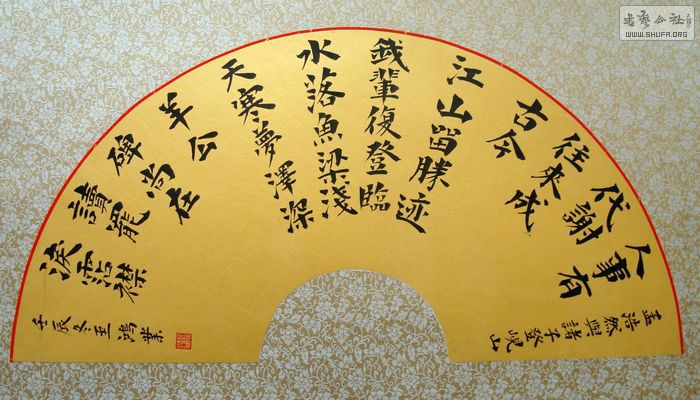 孟浩然與諸子登峴山
人事有
代謝
往來成
古今
江山留勝迹
我輩復登臨
水落魚梁淺
天寒夢澤深
羊公
碑尚在
讀罷
淚霑襟
壬辰冬至鴻業
書藝公社
WWW.SHUFA.ORG